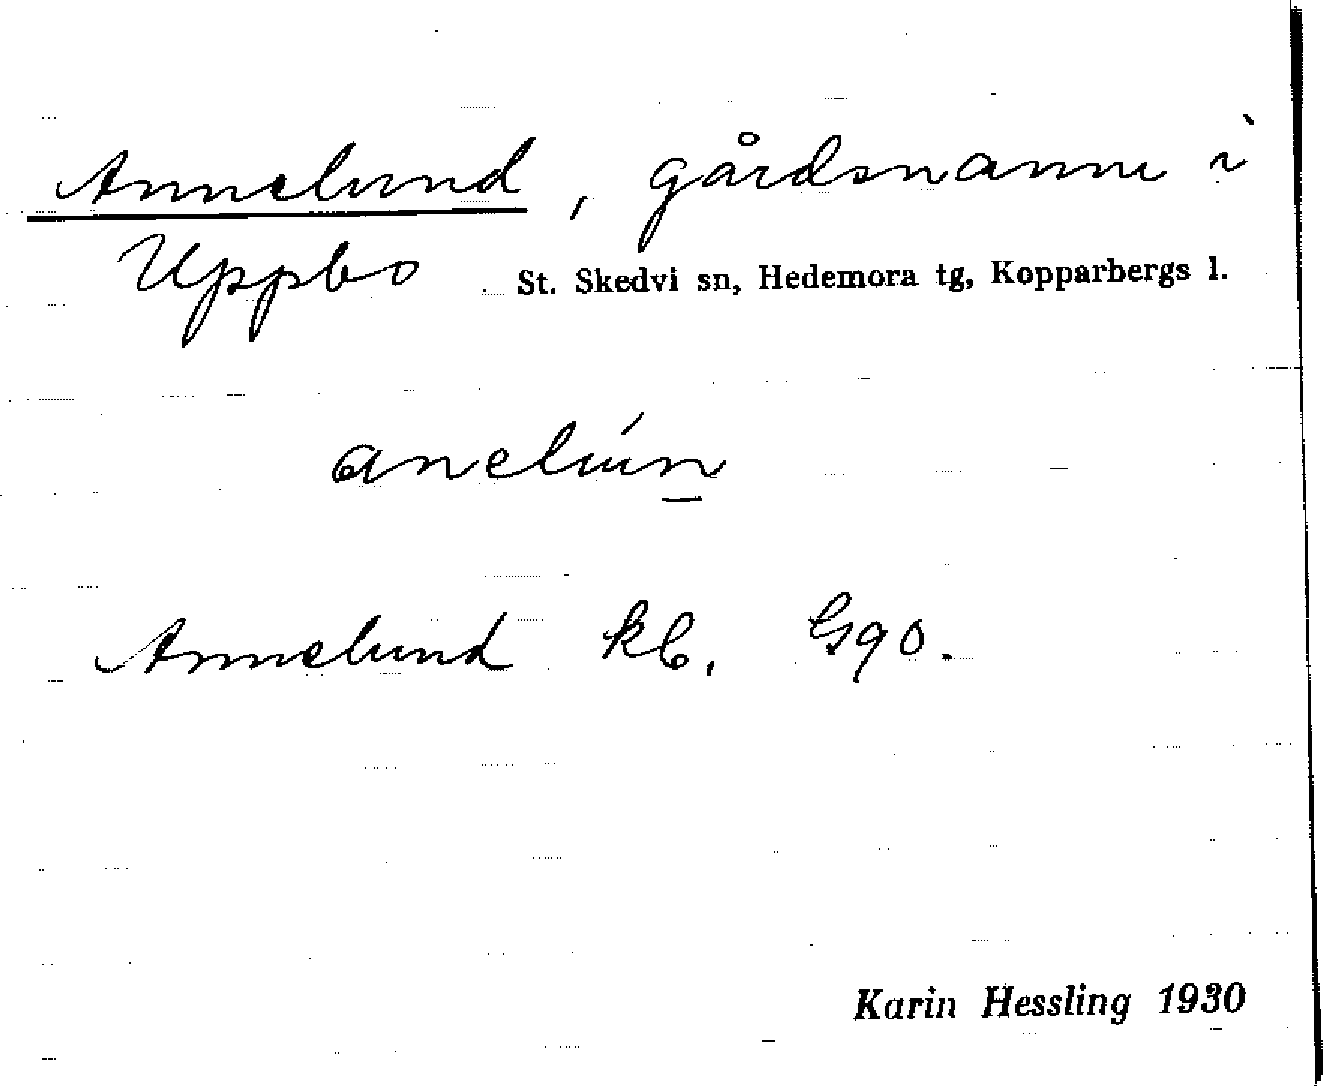 Annelund, gårdsnamn i
Uppbo St. Skedvi sn, Hedemora tg, Kopparbergs l.
anelún
Annelund kb.
Karin Hessling 1930